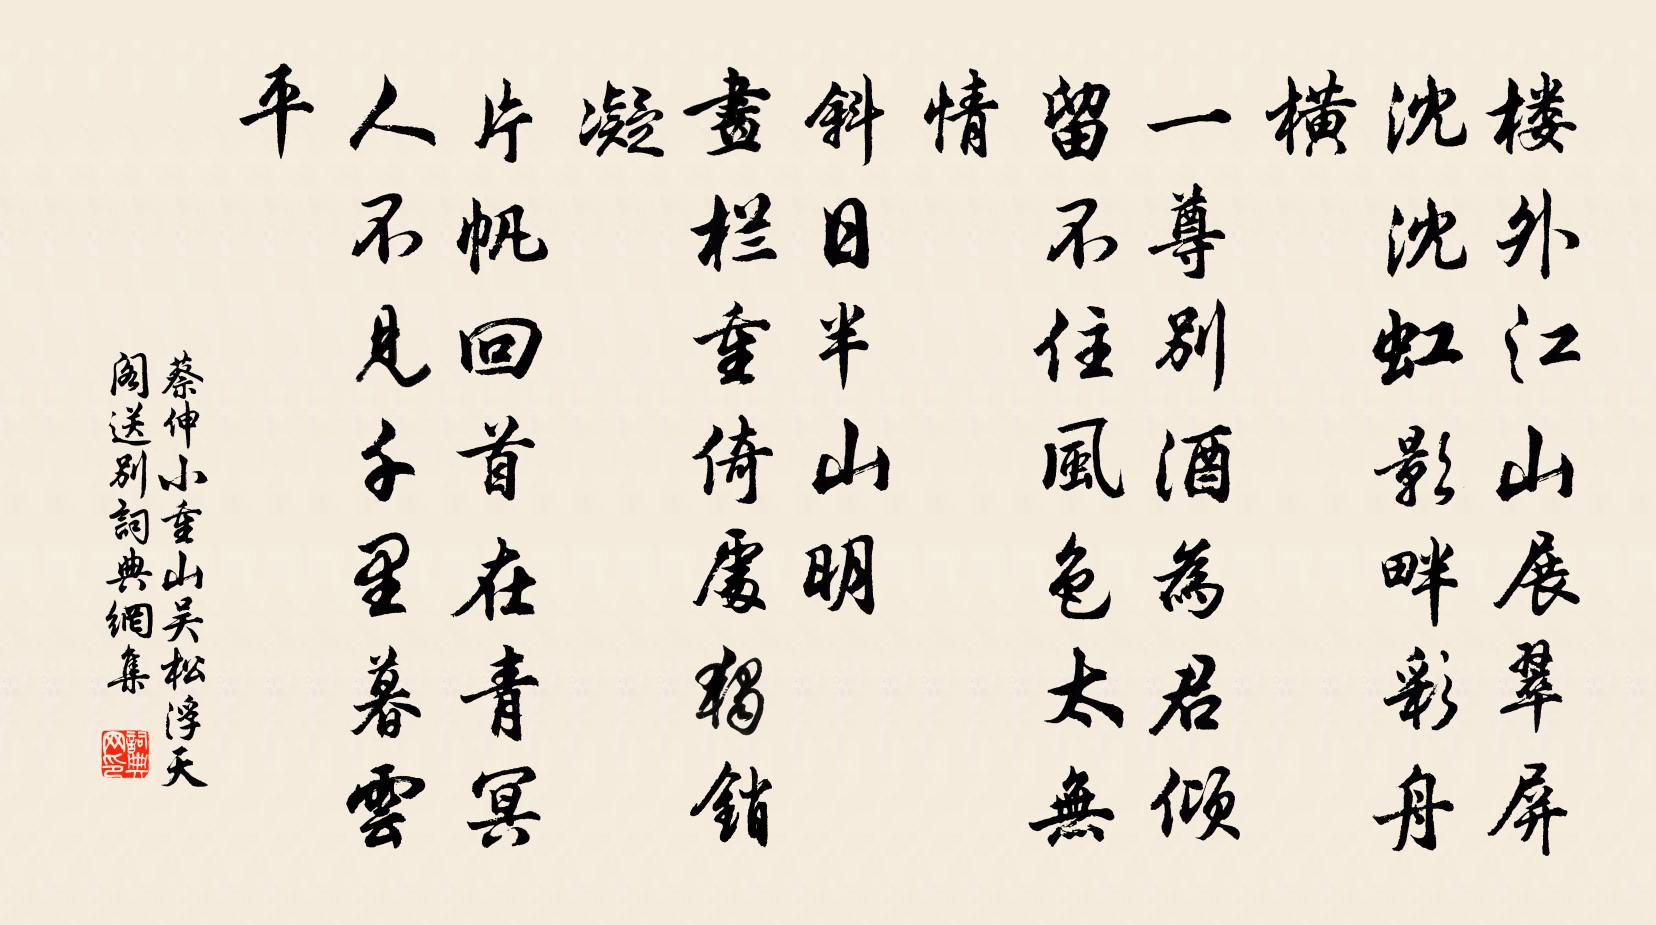 楼外江山展翠屏
沈沈虹影畔彩舟
橫
一尊别酒為君倾
留不住風色太無
情
斜日半山明
畫栏重倚處獨銷
凝
片帆回首在青冥
人不見千里暮雲
平
蔡伸小重山吴松浮天
阁送别詞典網集
詞典网印